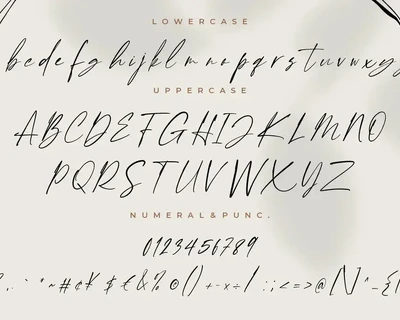 LOWERCASE
bcdefghijklmnopqrstuvwxyz
UPPERCASE
ABCDEFGHIJKLMNO
PQRSTUVWXYZ
NUMERAL&PUNC.
0123456789
# ¢ ¥ $ € & % ° ( ) + - × ÷ / : ; < = > @ [ \ ] ^ _ {